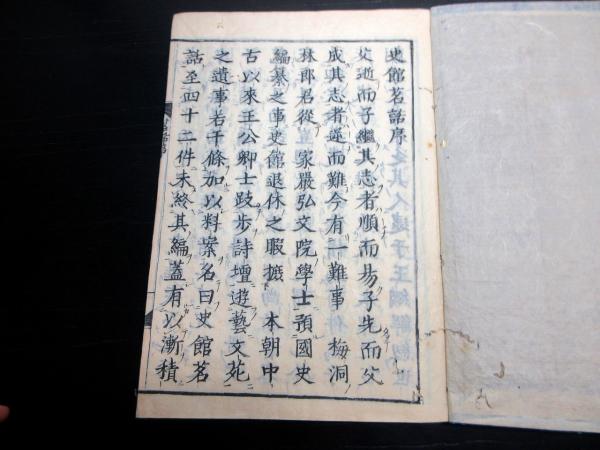 史館茗話序
父逝而子繼其志者順而易子先而父
成其志者逆而難今有一難事 梅洞
林郎君從 家嚴弘文院學士預國史
編纂之事史館退休之暇摭 本朝中
古以來王公卿士跂步詩壇遊藝文苑
之遺事若干條加以料案名曰史館茗
話至四十二件未終其編蓋有以漸積